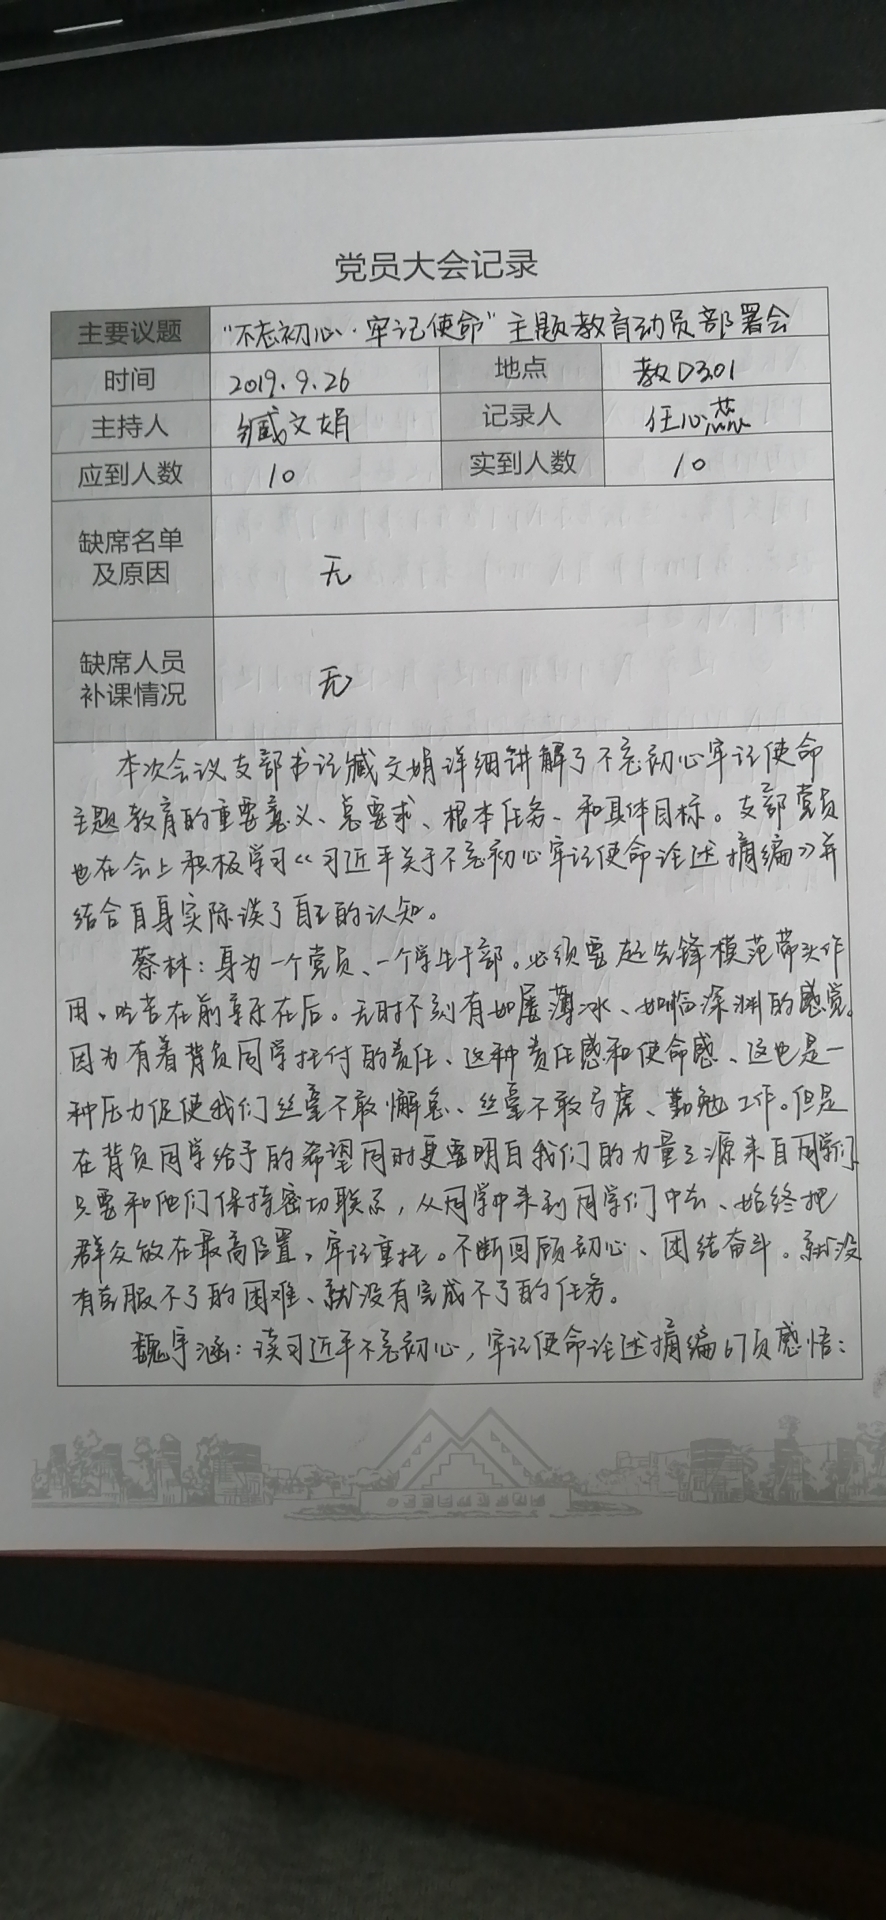 党员大会记录
主要议题 “不忘初心·牢记使命”主题教育动员部署会
时间 2019.9.26 地点 教D301
主持人 臧文娟 记录人 任心蕊
应到人数 10 实到人数 10
缺席名单
及原因 无
缺席人员
补课情况 无
本次会议支部书记臧文娟详细讲解了不忘初心牢记使命
主题教育的重要意义、总要求、根本任务、和具体目标。支部党员
也在会上积极学习《习近平关于不忘初心牢记使命论述摘编》并
结合自身实际谈了自己的认知。
蔡林：身为一个党员、一个学生干部。必须要起先锋模范带头作
用、吃苦在前享乐在后。无时不刻有如履薄冰、如临深渊的感觉。
因为有着背负同学托付的责任、这种责任感和使命感、这也是一
种压力促使我们丝毫不敢懈怠、丝毫不敢马虎、勤勉工作。但是
在背负同学给予的希望同时更要明白我们的力量之源来自同学们
只要和他们保持密切联系，从同学中来到同学们中去、始终把
群众放在最高位置，牢记重托。不断回顾初心、团结奋斗。就没
有克服不了的困难、就没有完成不了的任务。
魏宇涵：读习近平不忘初心，牢记使命论述摘编67页感悟：